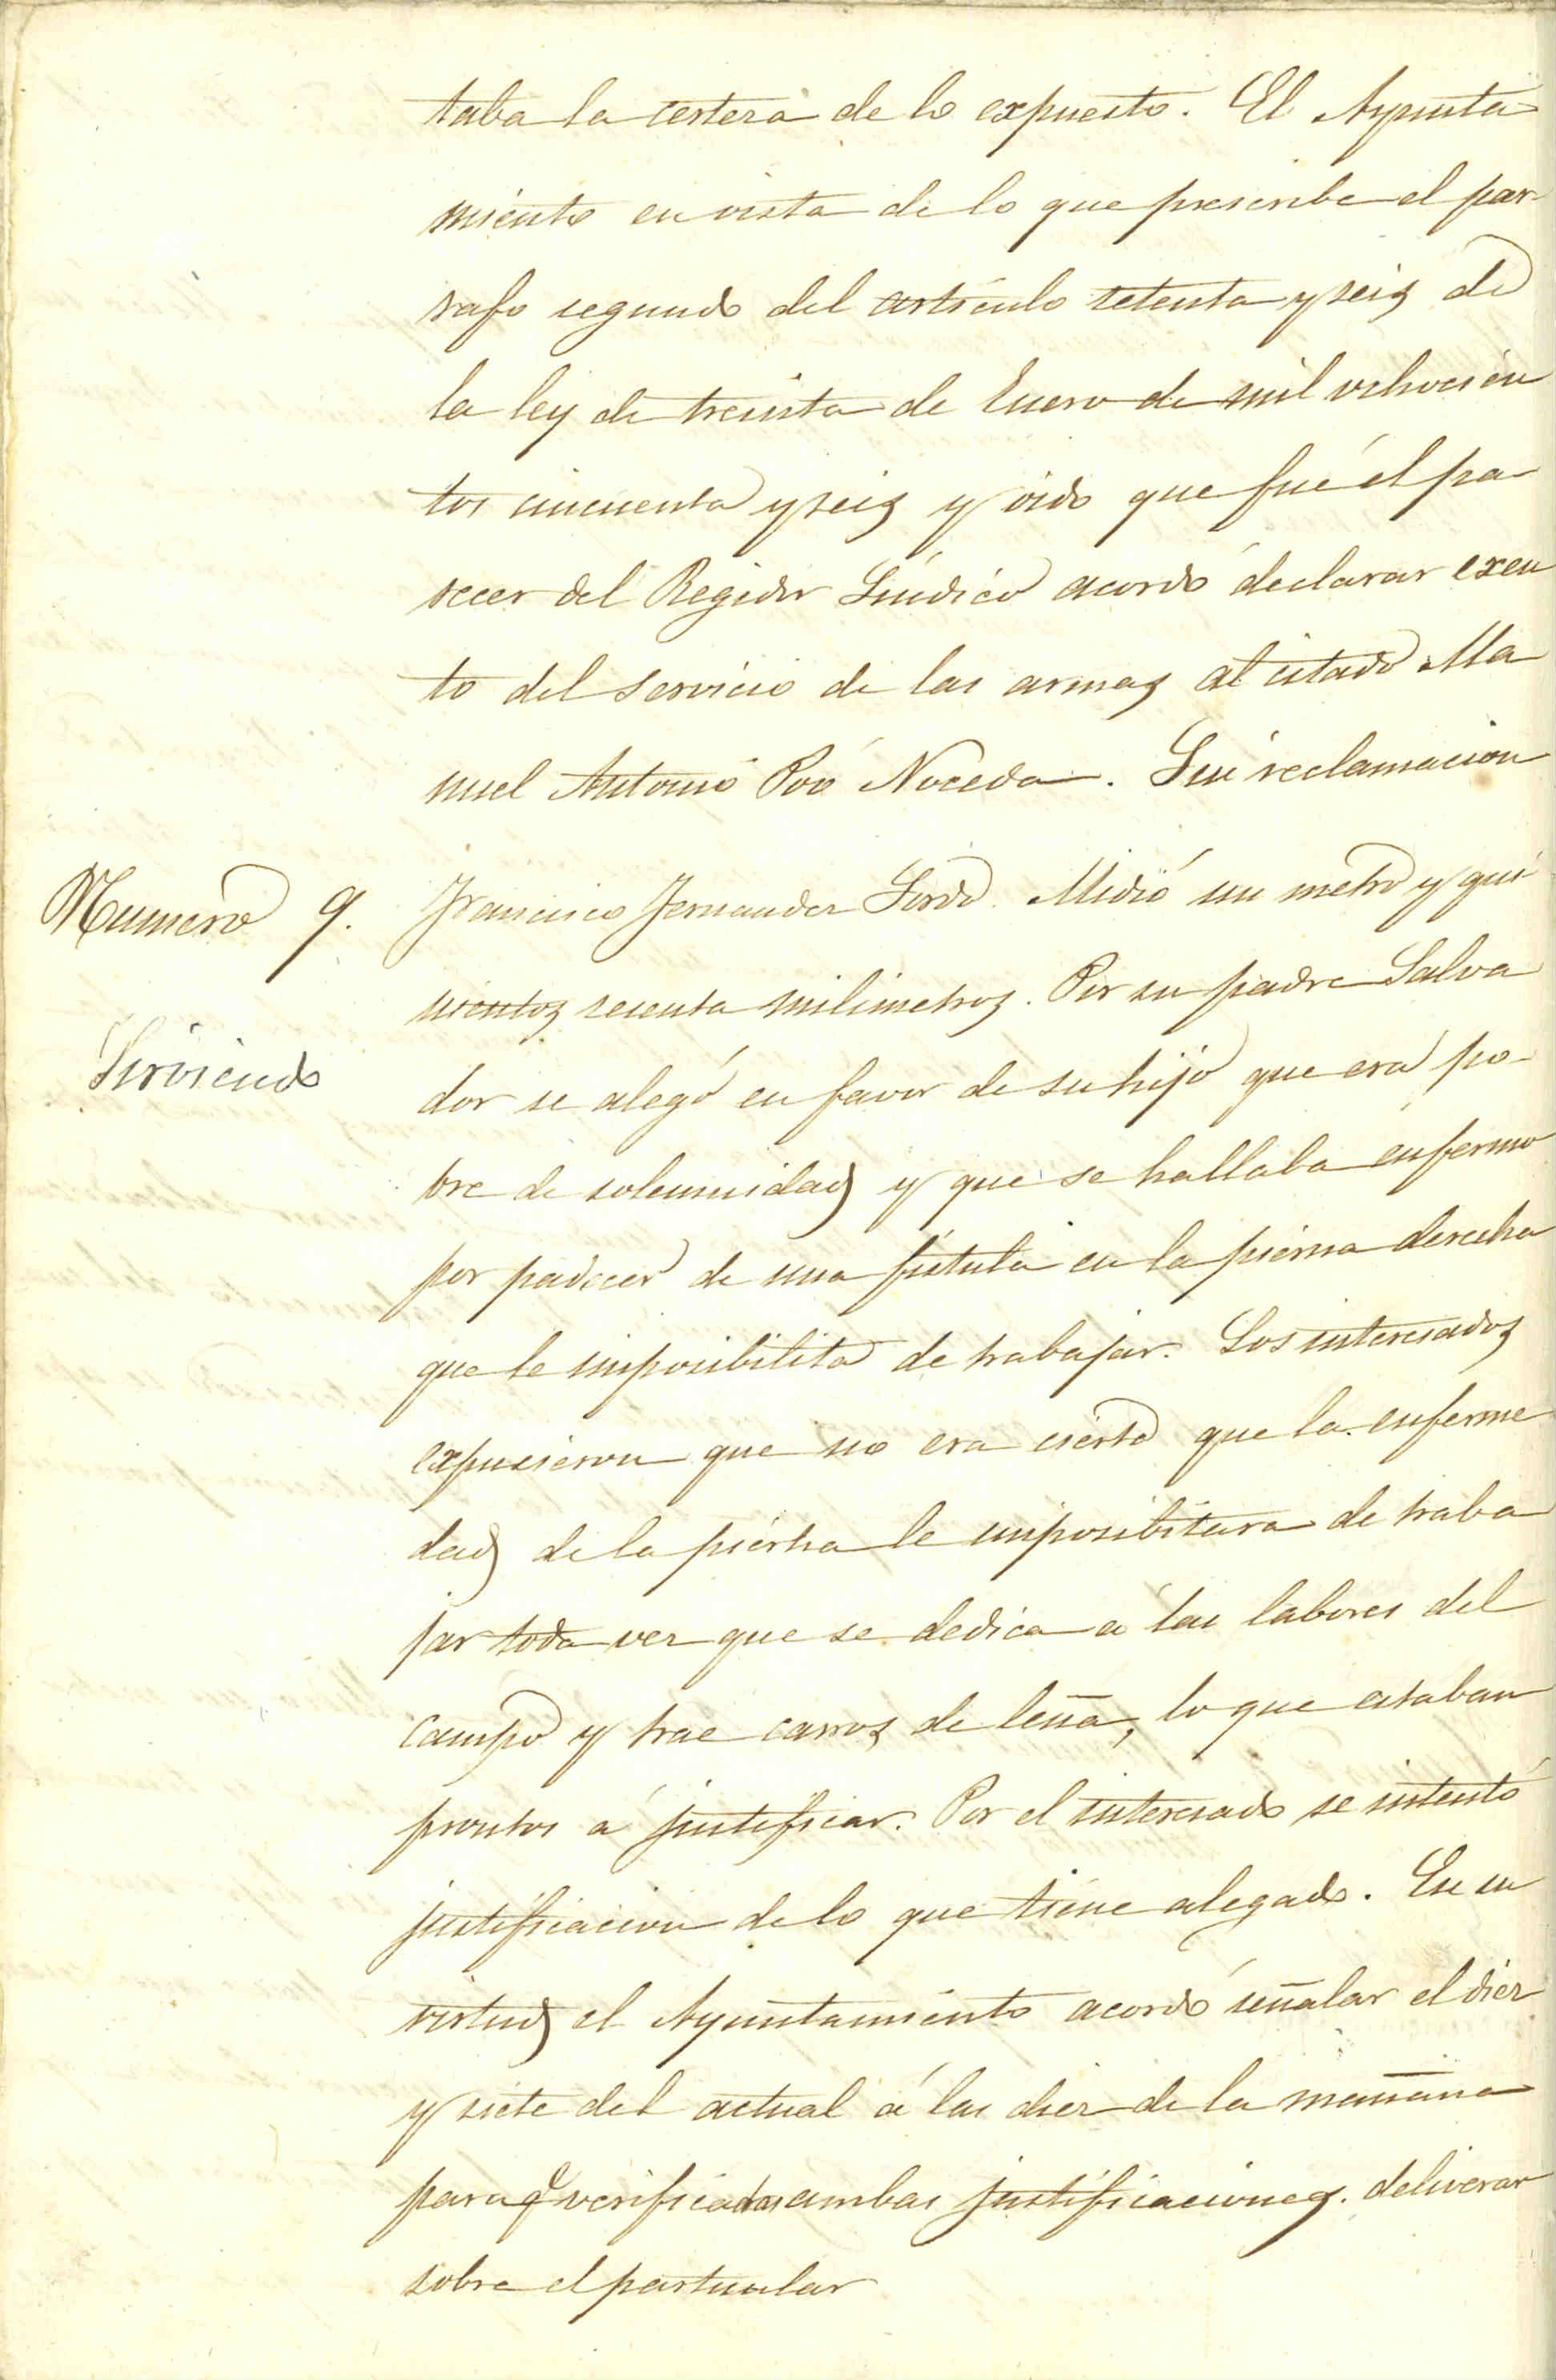 taba la certeza de lo expuesto. El Ayunta-
miento en vista de lo que prescribe el par-
rafo segundo del artículo setenta y seis de
la ley de treinta de Enero de mil ochocien
tos cincuenta y seis y oido que fué el pa-
recer del Regidor Síndico acordó declarar exen
to del servicio de las armas al citado Ma
nuel Antonio Poó Noceda. Sin reclamacion
Numero 9. Francisco Fernandez Sordo. Midió un metro y qui
nientos sesenta milimetros. Por su padre Salva
Sirviendo
dor se alegó en favor de su hijo que era po-
bre de solemnidad y que se hallaba enfermo
por padecer de una fístula en la pierna derecha
que le imposibilita de trabajar. Los interesados
expusieron que no era cierto que la enferme
dad de la pierna le imposibitara de traba
jar toda vez que se dedica a las labores del
campo y trae carros de leña, lo que estaban
prontos á justificar. Por el interesado se intentó
justificacion de lo que tiene alegado. En su
virtud el Ayuntamiento acordó señalar el diez
y siete del actual á las diez de la mañana
para q verificadas ambas justificaciones deliverar
sobre el partucular